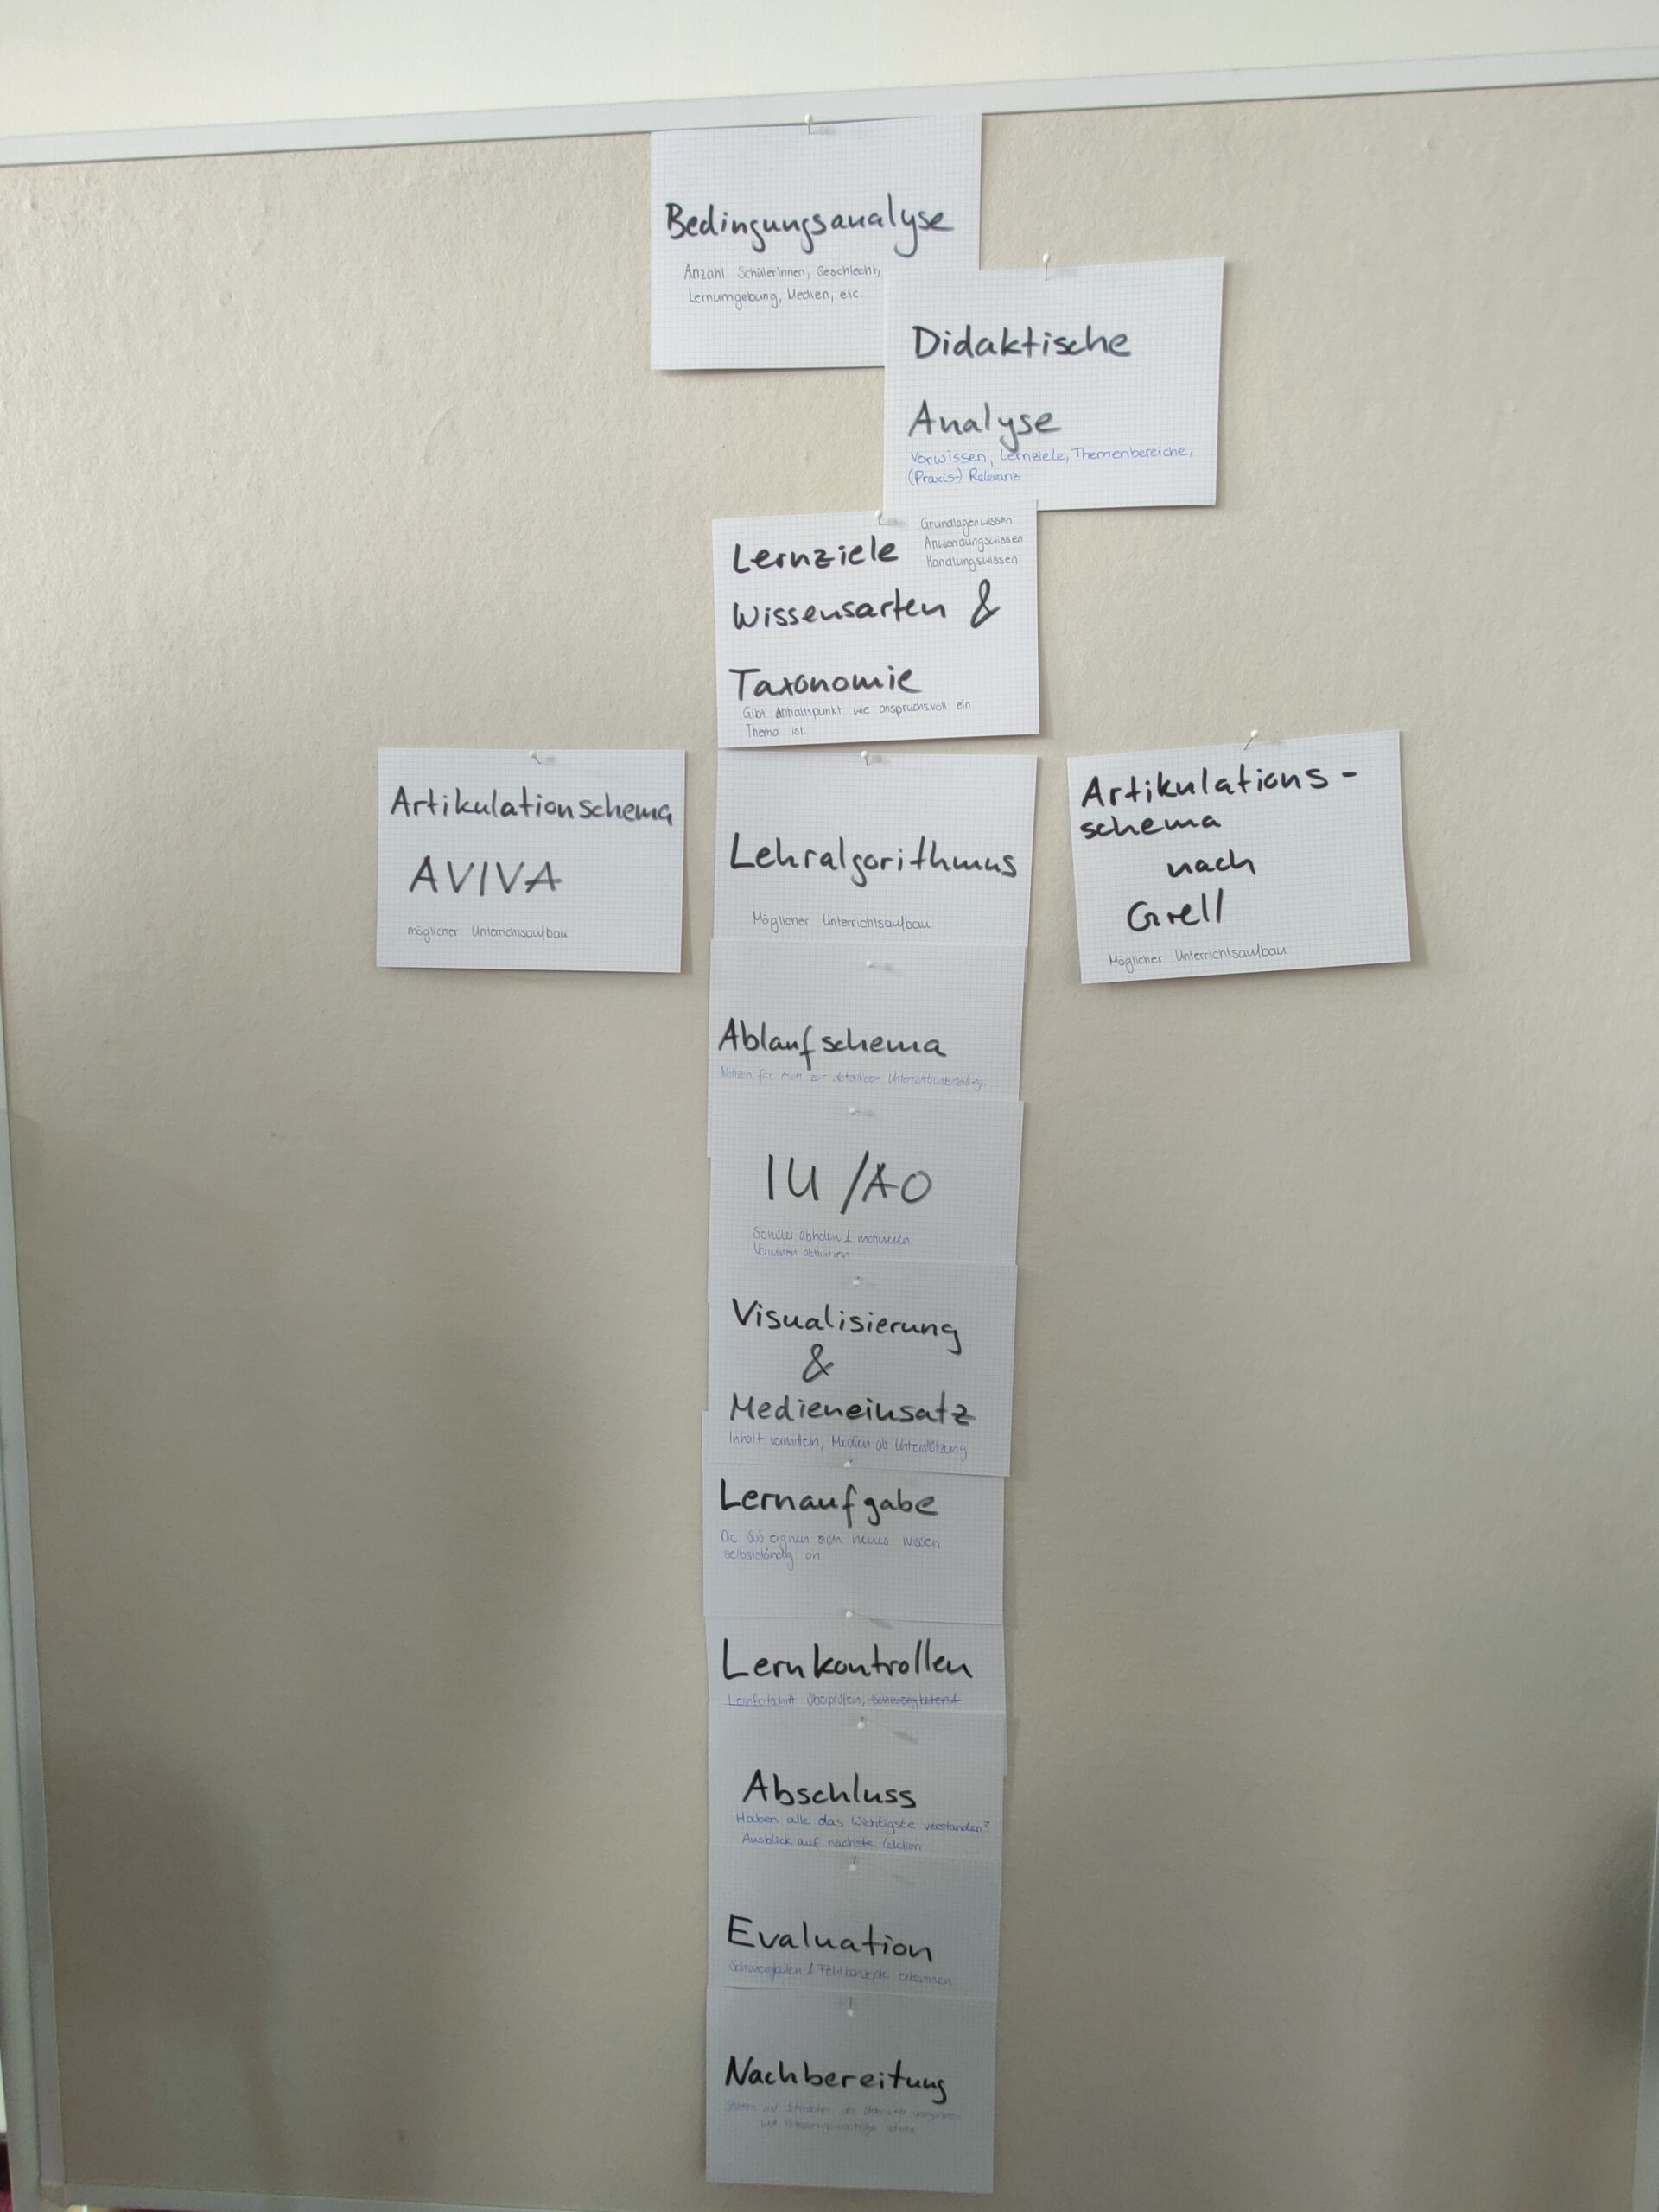 Bedingungsanalyse
Anzahl SchülerInnen, Geschlecht,
Lernumgebung, Medien, etc.
Didaktische
Analyse
Vorwissen, Lernziele, Themenbereiche,
(Praxis-) Relevanz
Lernziele
Grundlagenwissen
Anwendungswissen
Handlungswissen
Wissensarten &
Taxonomie
Gibt Anhaltspunkt wie anspruchsvoll ein
Thema ist.
Artikulationschema
AVIVA
möglicher Unterrichtsaufbau
Lehralgorithmus
Möglicher Unterrichtsaufbau
Artikulations-
schema
nach
Grell
Möglicher Unterrichtsaufbau
Ablaufschema
Notizen für mich zur
IU/AO
Schüler abholen & motivieren
Vorwissen
Visualisierung
&
Medieneinsatz
Inhalt vermitteln, Medien als Unterstützung
Lernaufgabe
Die SuS eignen sich neues Wissen
selbstständig an
Lernkontrollen
Lernfortschritt überprüfen,
Abschluss
Haben alle das Wichtigste verstanden?
Ausblick auf nächste Lektion
Evaluation
Schwierigkeiten & Fehlkonzepte erkennen
Nachbereitung